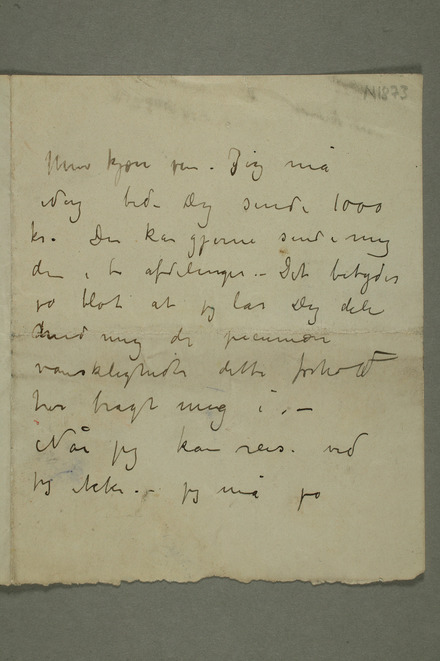 N1873
Min kjære ven. Jeg må
idag bede Dig sende 1000
kr. Du kan gjerne sende mig
dem i to afdelinger. – Det betyder
jo blot at jeg lar Dig dele
med mig de pecuniære
vanskligheder dette forhold
har bragt mig i. –
Når jeg kan reise ved
jeg ikke. – jeg må jo